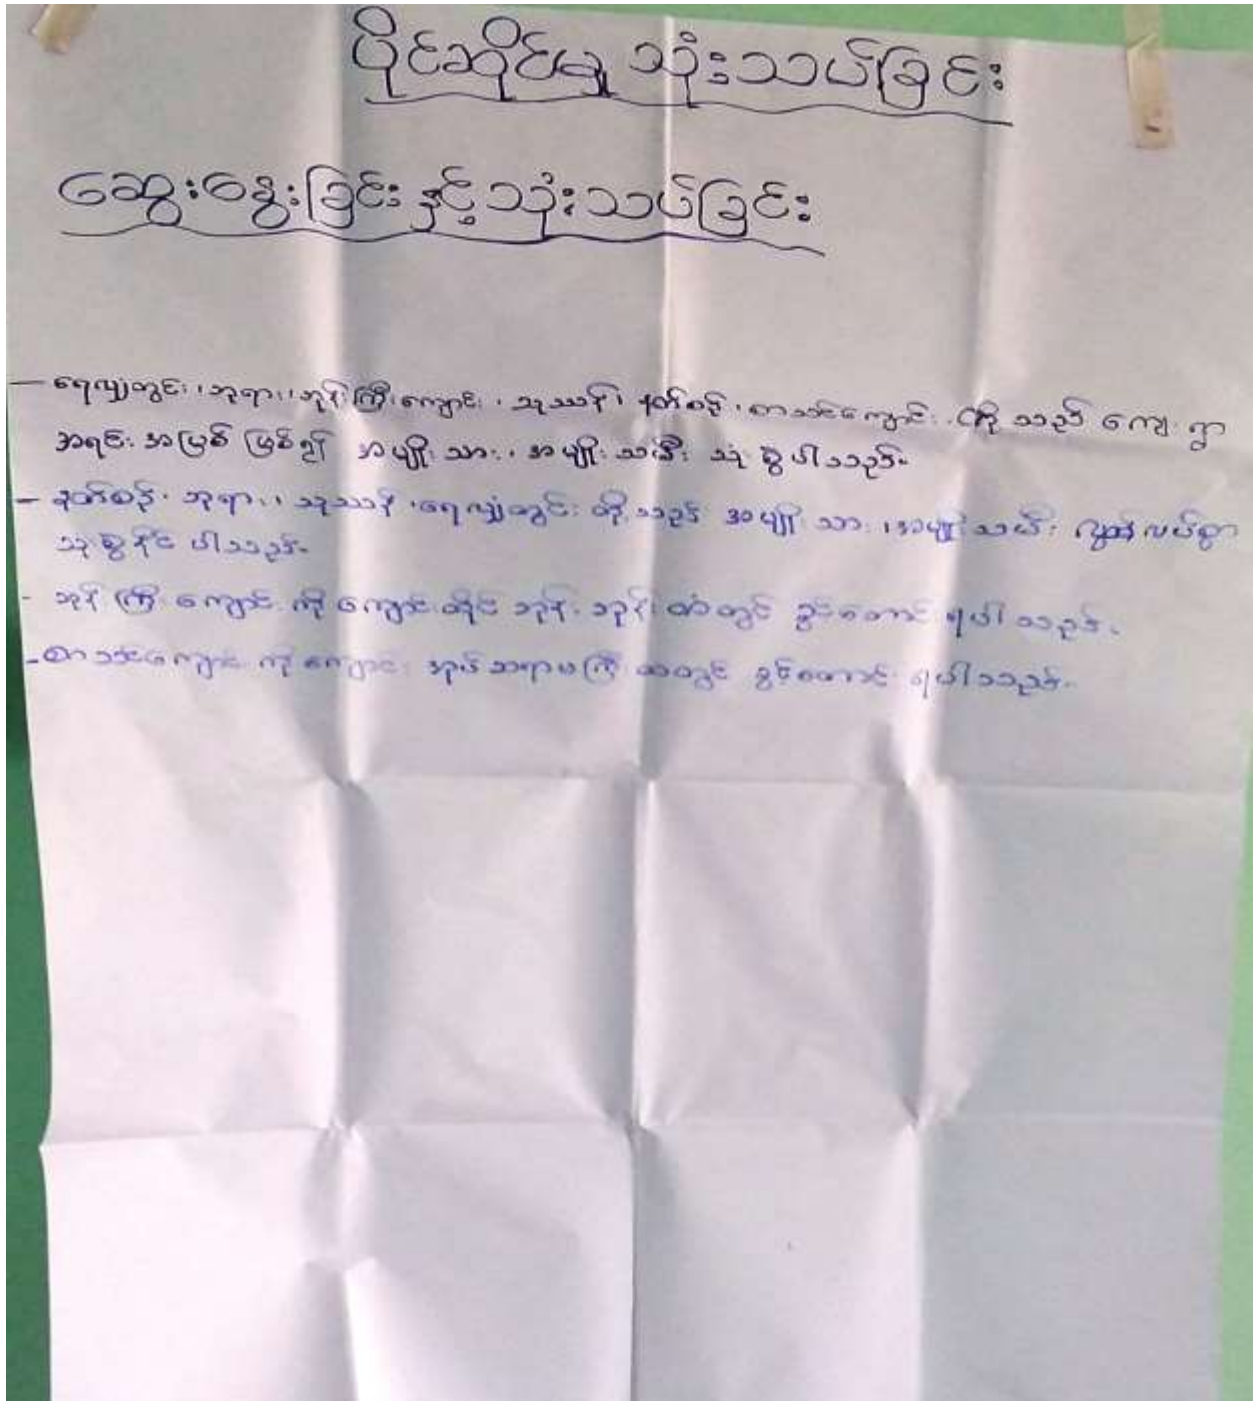 ပိုင်ဆိုင်မှု သုံးသပ်ခြင်း
ဆွေးနွေးခြင်း နှင့် သုံးသပ်ခြင်း
– ရေလှူတွင်း၊ ဘုရား၊ ဘုန်းကြီးကျောင်း၊ သုဿန်၊ နတ်စင်၊ စာသင်ကျောင်း၊ တို့သည် ကျေးရွာ
အရင်းအမြစ် ဖြစ်၍ အမျိုးသား၊ အမျိုးသမီး သုံးစွဲပါသည်။
– နတ်စင်၊ ဘုရား၊ သုဿန်၊ ရေလှူတွင်း တို့သည် အမျိုးသား၊ အမျိုးသမီး လွတ်လပ်စွာ
သုံးစွဲနိုင်ပါသည်။
- ဘုန်းကြီးကျောင်းကို ကျောင်းထိုင်ဘုန်းဘုန်းထံတွင် ခွင့်တောင်းရပါသည်။
- စာသင်ကျောင်းကို ကျောင်းအုပ်ဆရာမကြီးထံတွင် ခွင့်တောင်းရပါသည်။